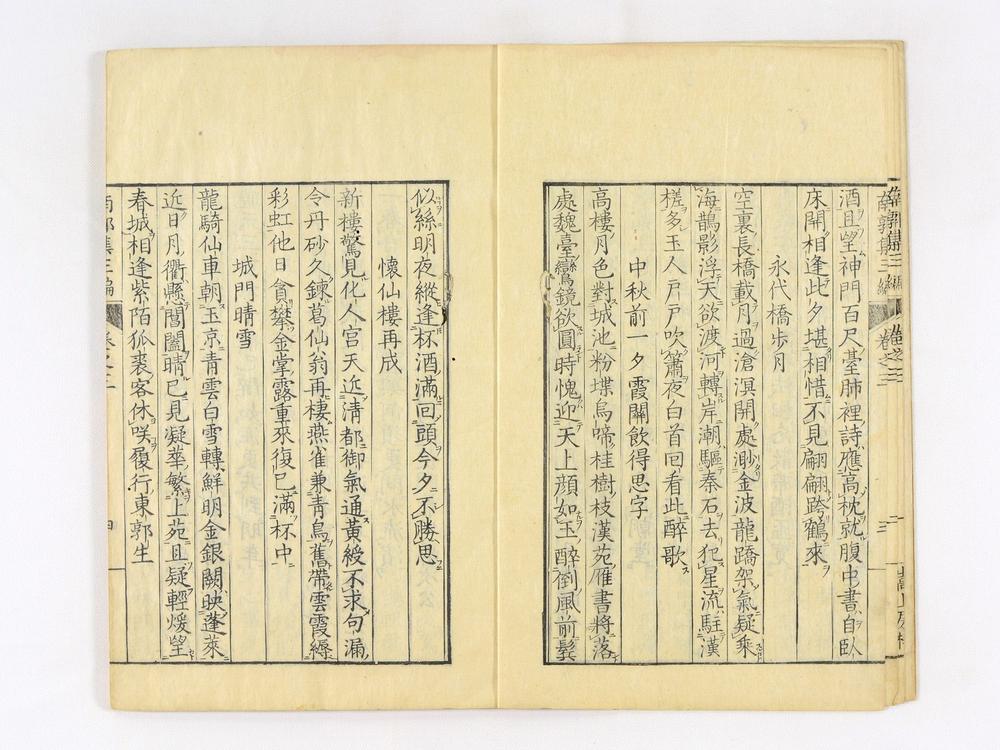 南郭集三編 卷之三
酒且望神門百尺臺肺裡詩應高枕就腹中書自臥
床開相逢此夕堪相惜不見翩翩跨鶴來
永代橋步月
空裏長橋載月過滄溟開處渺金波龍蹻架氣疑乘
海鵲影浮天欲渡河轉岸潮驅秦石去犯星流駐漢
槎多玉人戶戶吹簫夜白首回看此醉歌
中秋前一夕霞關飲得思字
高樓月色對城池粉堞烏啼桂樹枝漢苑雁書將落
處魏臺鸞鏡欲圓時愧迎天上顔如玉醉倒風前鬂
似絲明夜縱逢杯酒滿回頭今夕不勝思
懷仙樓再成
新樓驚見化人宮天近清都御氣通黃綬不求句漏
令丹砂久鍊葛仙翁再棲燕雀兼青鳥舊帶雲霞縟
彩虹他日貪攀金掌露重來復已滿杯中
城門晴雪
龍騎仙車朝玉京青雲白雪轉鮮明金銀闕映蓬萊
近日月衢懸閶闔晴已見凝華繁上苑且疑輕煖望
春城相逢紫陌狐裘客休咲履行東郭生
南郭集三編 卷之三 四